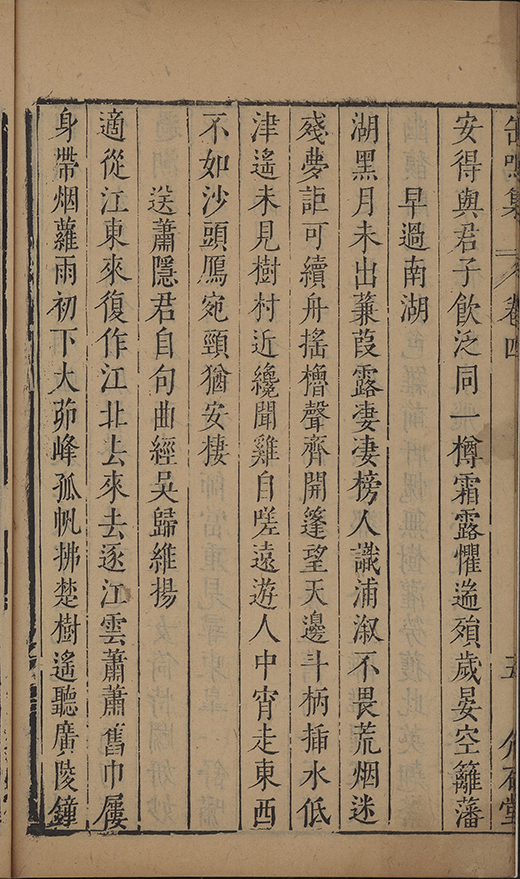 缶鳴集 卷四 五
安得與君子飲泛同一樽霜露懼遄殞歲晏空籬藩
早過南湖
湖黑月未出蒹葭露凄凄榜人識浦溆不畏荒烟迷
殘夢詎可續舟搖櫓聲齊開篷望天邊斗柄揷水低
津遙未見樹村近纔聞雞自嗟遠遊人中宵走東西
不如沙頭鴈宛頸猶安棲
送蕭隱君自句曲經吳歸維揚
適從江東來復作江北去來去逐江雲蕭蕭舊巾屨
身帶烟蘿雨初下大茆峰孤帆拂楚樹遙聽廣陵鐘